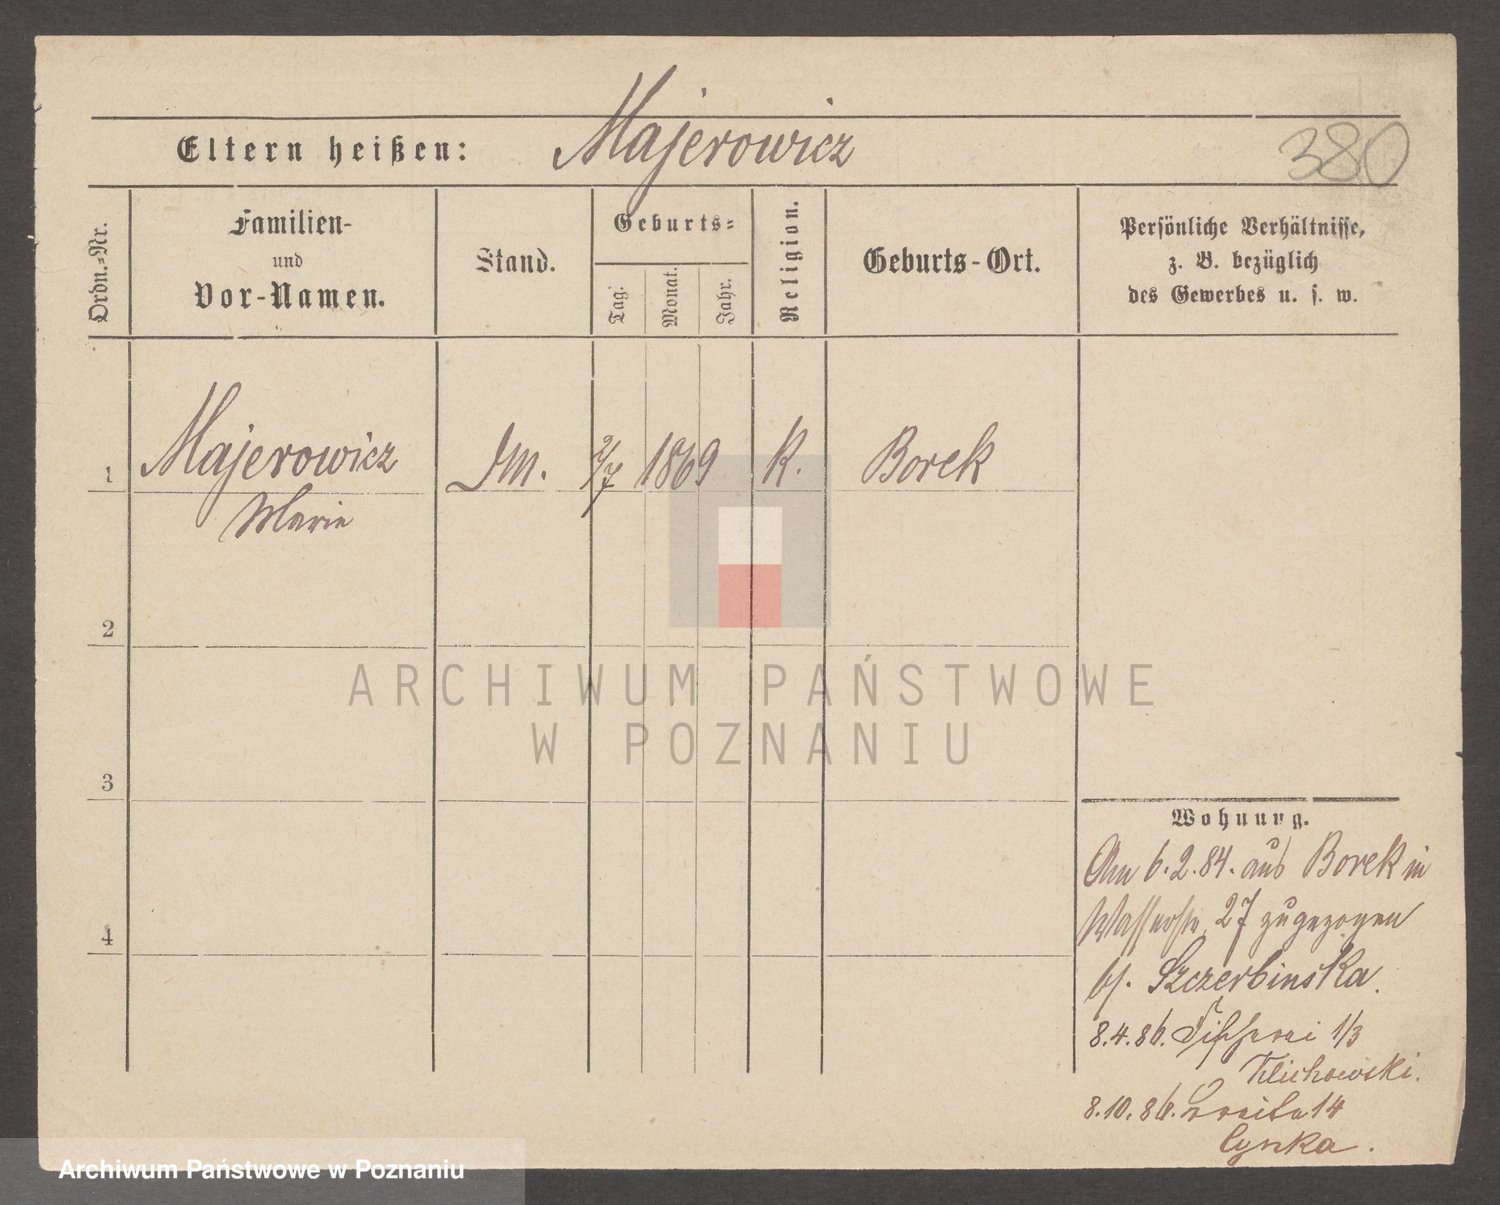 Eltern heißen: Majerowicz
380
Ordn.=Nr.
Familien-
und
Vor-Namen.
Stand.
Geburts=
Tag.
Monat.
Jahr.
Religion.
Geburts-Ort.
Persönliche Verhältnisse,
z. B. bezüglich
des Gewerbes u. s. w.
1 Majerowicz 2/7 1869 K. Borek
Marie
2
3
4
ARCHIWUM PAŃSTWOWE
W POZNANIU
Wohnung.
Am 6.2.84. aus Borek in
Wasserstr. 27 zugezogen
bf. Szczerbinska.
8.4.86. Fischerei 1/3
Klichowski.
8.10.86. Breite 14
Cynka.
Archiwum Państwowe w Poznaniu